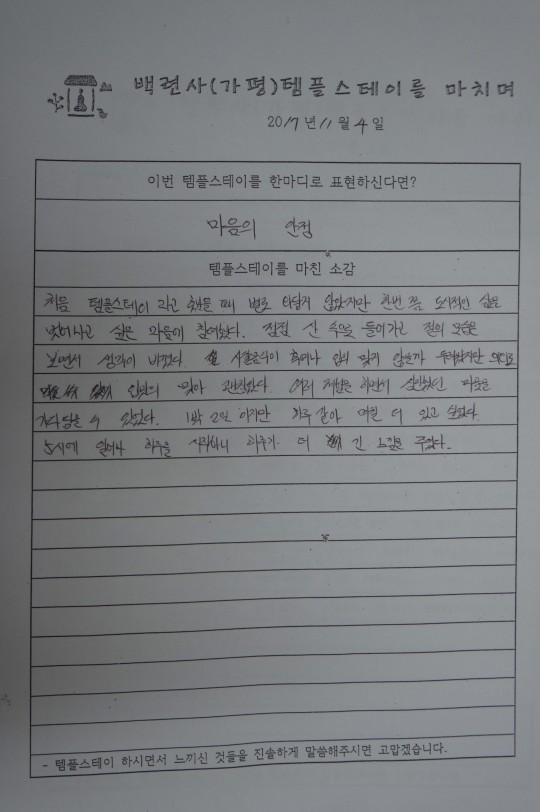 백련사(가평)템플스테이를 마치며
2017년 11월 4일
이번 템플스테이를 한마디로 표현하신다면?
마음의 안정
템플스테이를 마친 소감
처음 템플스테이 라고 했을 때 별로 반갑지 않았지만 한번 쯤 도시적인 삶을
벗어나고 싶은 마음에 참여했다. 점점 산 속으로 들어가고 절의 모습을
보면서 생각이 바뀌었다. 사찰음식이 혹여나 입에 맞지 않을까 두려웠지만 의외로
입맛에 맞아 괜찮았다. 여러 체험을 하면서 심란했던 마음을
가다듬을 수 있었다. 1박 2일 이지만 하루 같아 며칠 더 있고 싶었다.
5시에 일어나 하루를 시작하니 하루가 더 긴 느낌을 주었다.
- 템플스테이 하시면서 느끼신 것들을 진솔하게 말씀해주시면 고맙겠습니다.